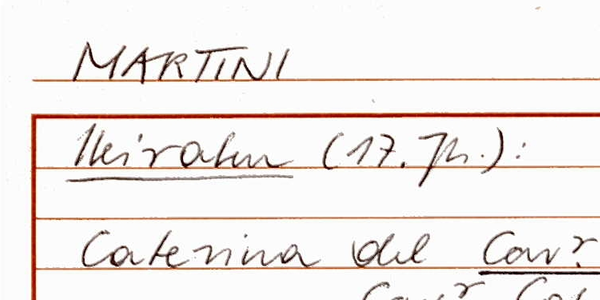 MARTINI
Heiraten (17. Jh.):
Caterina del Cav.r
Cav.r